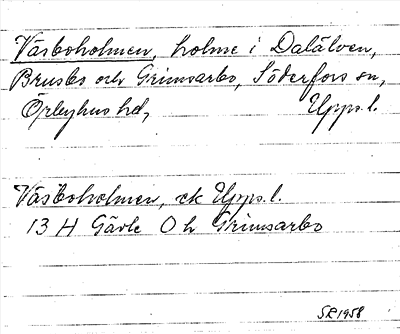 Väsboholmen, holme i Dalälven,
Brusbo och Grimsarbo, Söderfors sn,
Örbyhus hd, Upps. l.
Väsboholmen, ek Upps. l.
13 H Gävle O h Grimsarbo
SR 1958